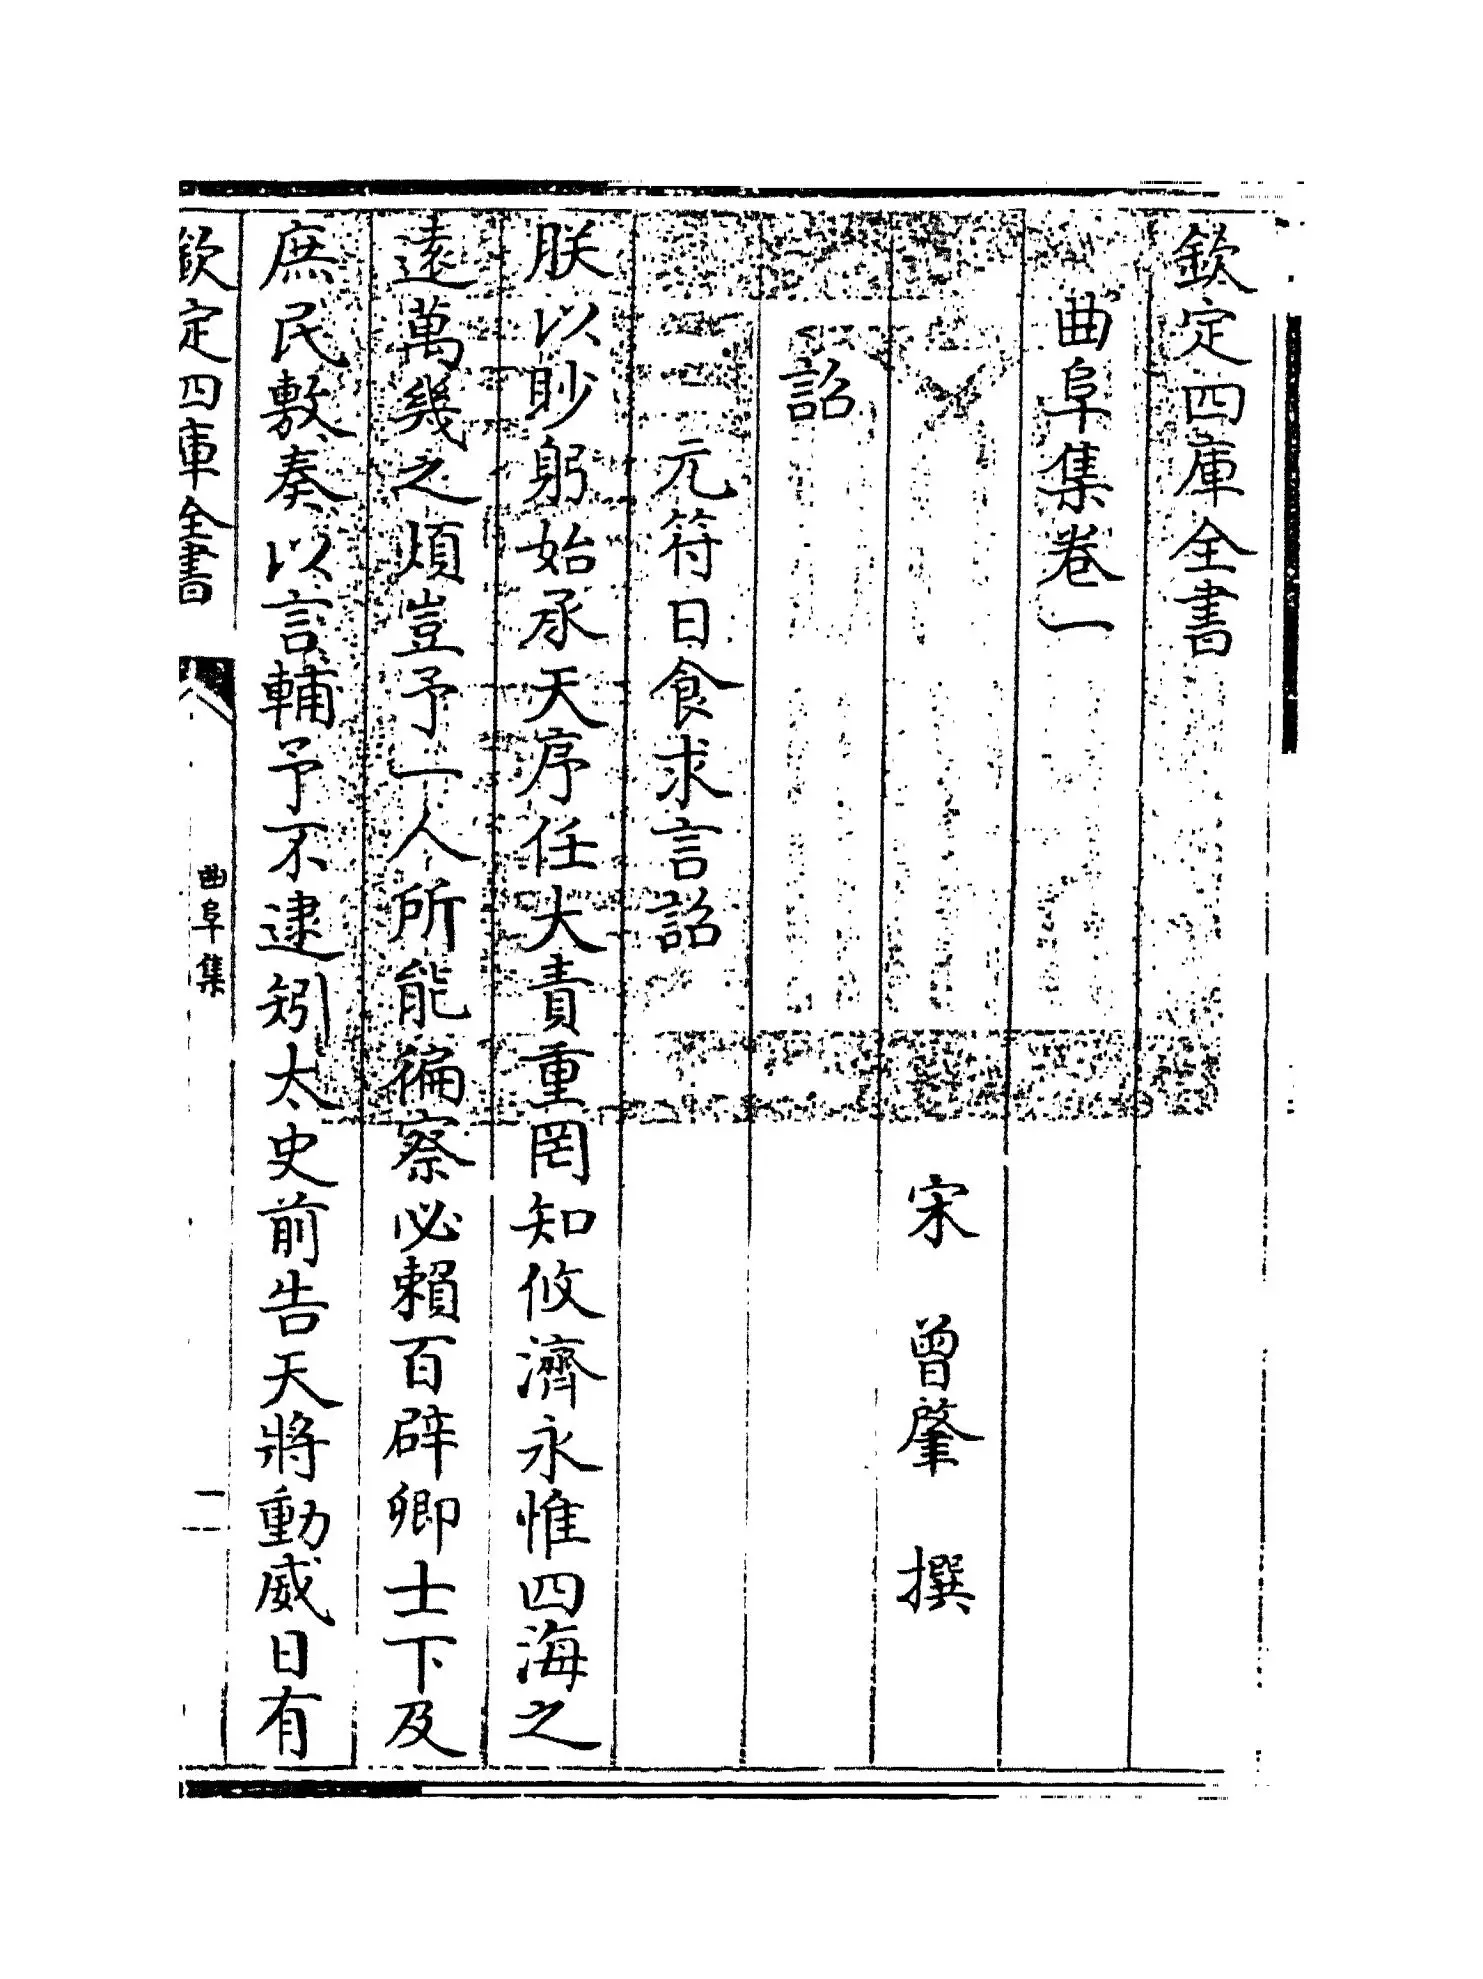 欽定四庫全書
曲阜集卷一
宋 曾肇 撰
詔
元符日食求言詔
朕以眇躬始承天序任大責重罔知攸濟永惟四海之
遠萬幾之煩豈予一人所能徧察必賴百辟卿士下及
庶民敷奏以言輔予不逮矧太史前告天將動威日有
欽定四庫全書
曲阜集
一